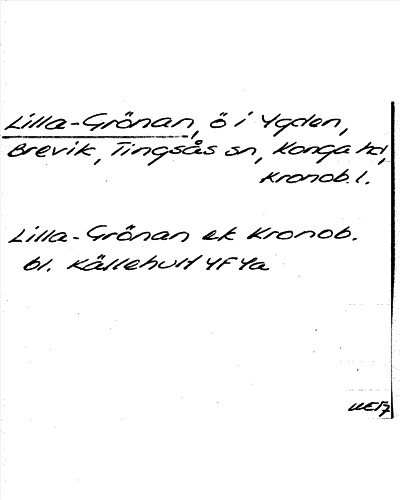 Lilla-Grönan, ö i Ygden,
Brevik, Tingsås sn, Konga hd,
Kronob. l.
Lilla-Grönan ek Kronob.
bl. Källehult 4F4a